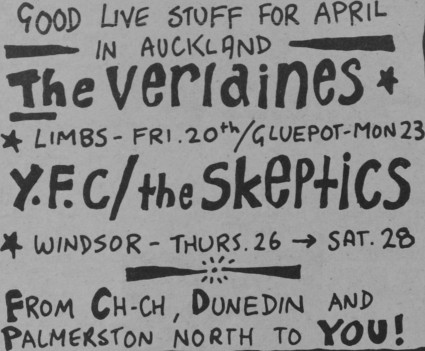 GOOD LIVE STUFF FOR APRIL
IN AUCKLAND
The Verlaines *
* LIMBS - FRI. 20th/GLUEPOT-MON 23
Y.F.C/the SKEPtiCS
* WINDSOR - THURS. 26 → SAT. 28
FROM CH-CH, DUNEDIN AND
PALMERSTON NORTH TO YOU!